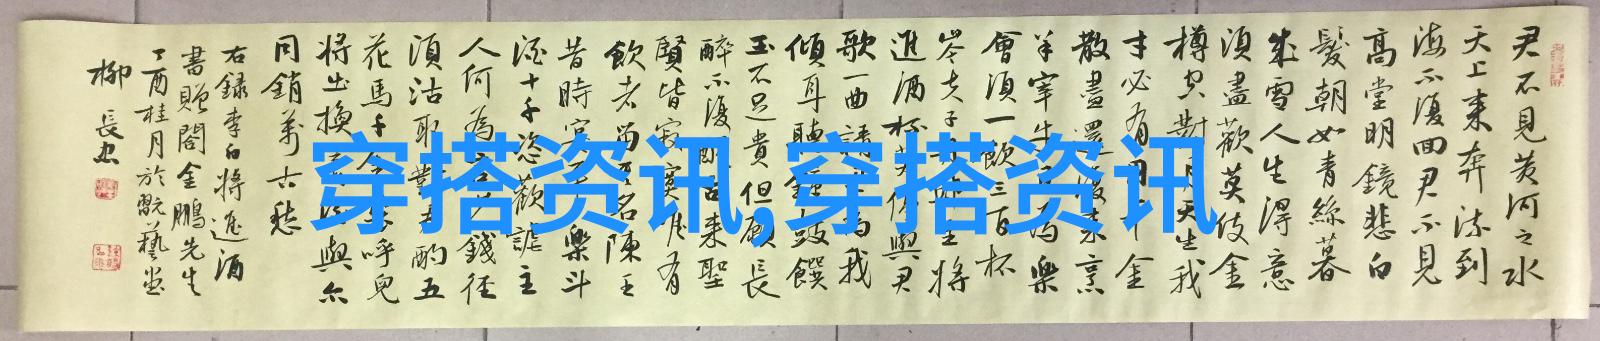 君不見黃河之水
天上来奔流到
海不復回君不見
高堂明鏡悲白
髮朝如青絲暮
成雪人生得意
須盡歡莫使金
樽空對月天生我
才必有用千金
散盡還復来烹
羊宰牛且為樂
會須一飲三百杯
岑夫子丹生將
進酒杯莫停與君
歌一曲請君為我
傾耳聽鐘鼓饌
玉不足貴但願長
醉不復醒古来聖
賢皆寂寞惟有
飲者留其名陳王
昔時宴平樂斗
酒十千恣歡謔主
人何為言少錢徑
須沽取對君酌五
花馬千金裘呼兒
將出換美酒與尔
同銷萬古愁
右録李白將進酒
書贈閤金鵬先生
丁酉桂月於翫藝堂
柳長忠
穿搭资讯,穿搭资讯